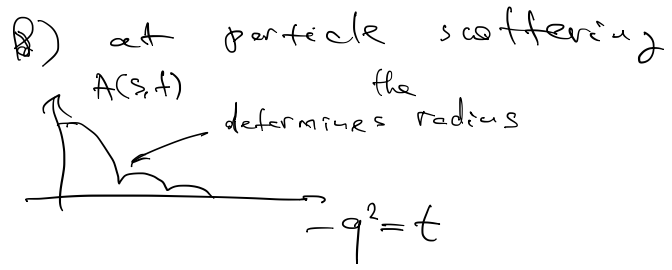 B) at particle scattering
A(s,t) the
determines radius
-q² = t